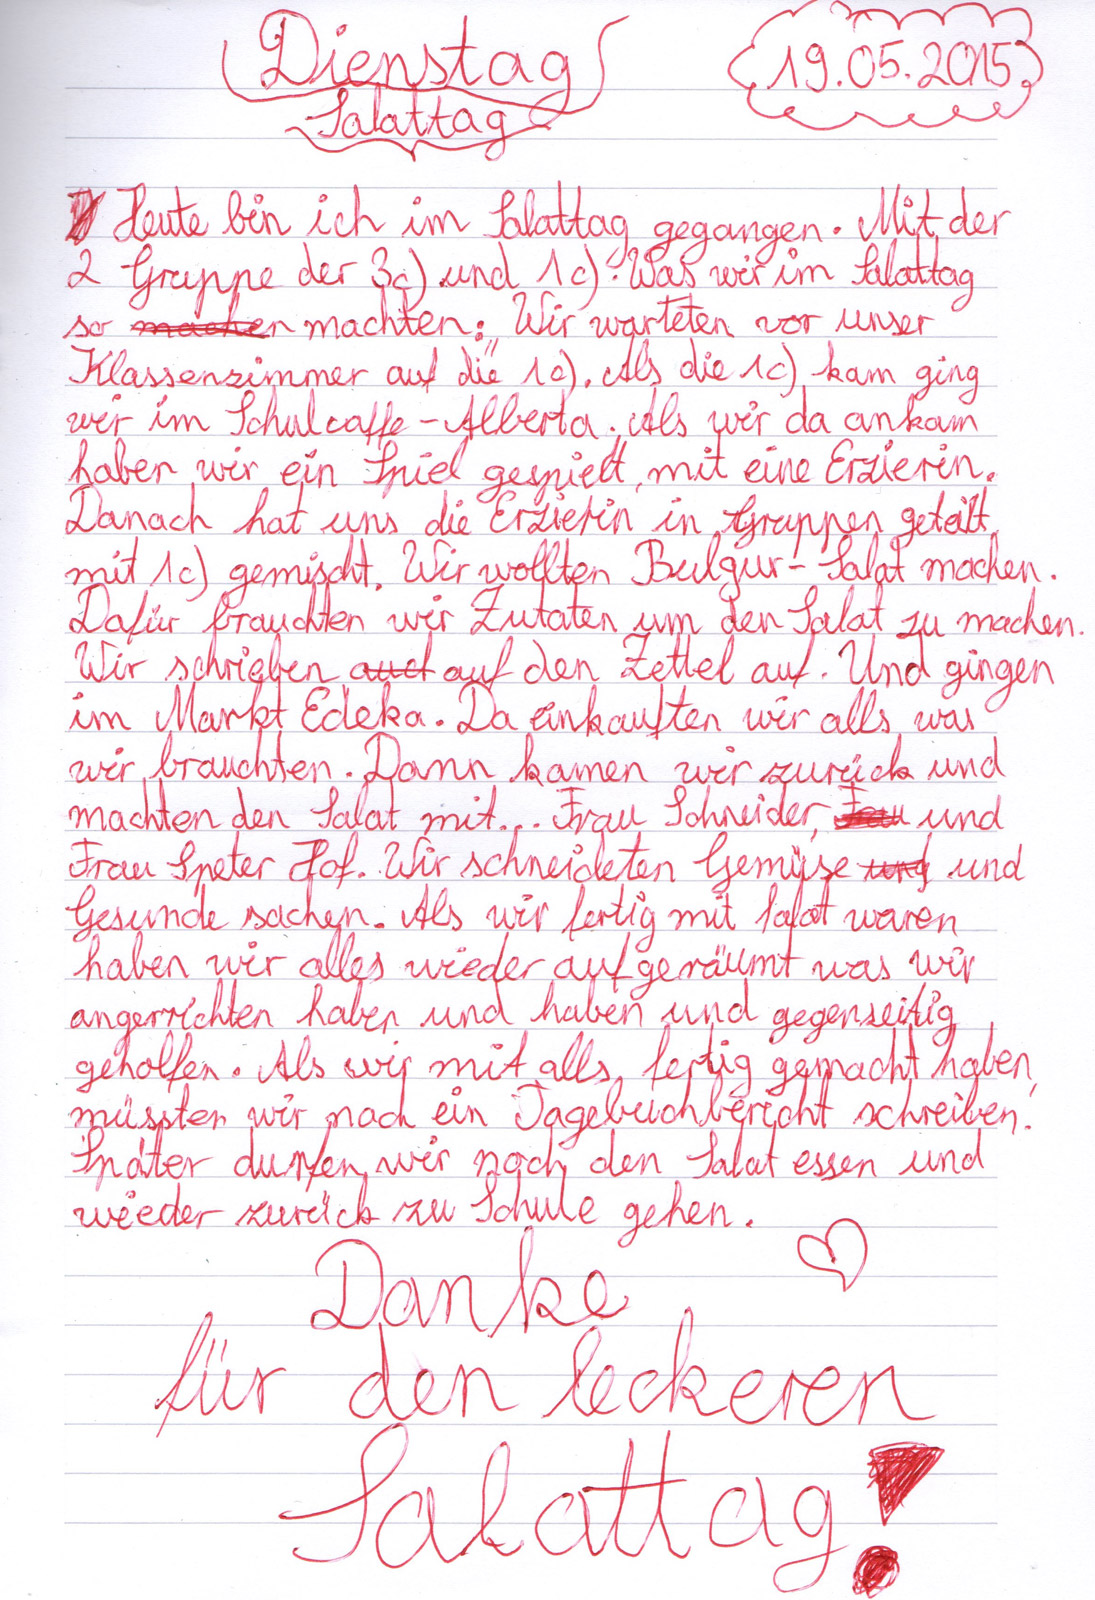 Dienstag
19.05.2015
Salattag
Heute bin ich im Salattag gegangen. Mit der
2 Gruppe der 3c) und 1c). Was wir im Salattag
so machen machten: Wir warteten vor unser
Klassenzimmer auf die 1c). Als die 1c) kam ging
wir im Schulcaffe-Alberta. Als wir da ankam
haben wir ein Spiel gespielt, mit eine Erzierin.
Danach hat uns die Erzierin in Gruppen geteilt
mit 1c) gemischt. Wir wollten Bulgur-Salat machen.
Dafür brauchten wir Zutaten um den Salat zu machen.
Wir schrieben auch auf den Zettel auf. Und gingen
im Markt Edeka. Da einkauften wir alls was
wir brauchten. Dann kamen wir zurück und
machten den Salat mit... Frau Schneider, Frau und
Frau Speter Hof. Wir schneideten Gemüse und und
Gesunde sachen. Als wir fertig mit Salat waren
haben wir alles wieder aufgeräumt was wir
angerrichten haben und haben und gegenseitig
geholfen. Als wir mit alls fertig gemacht haben,
müssten wir nach ein Tagebuchbericht schreiben.
Später durfen wir noch den Salat essen und
wieder zurück zu Schule gehen.
Danke
für den leckeren
Salattag!